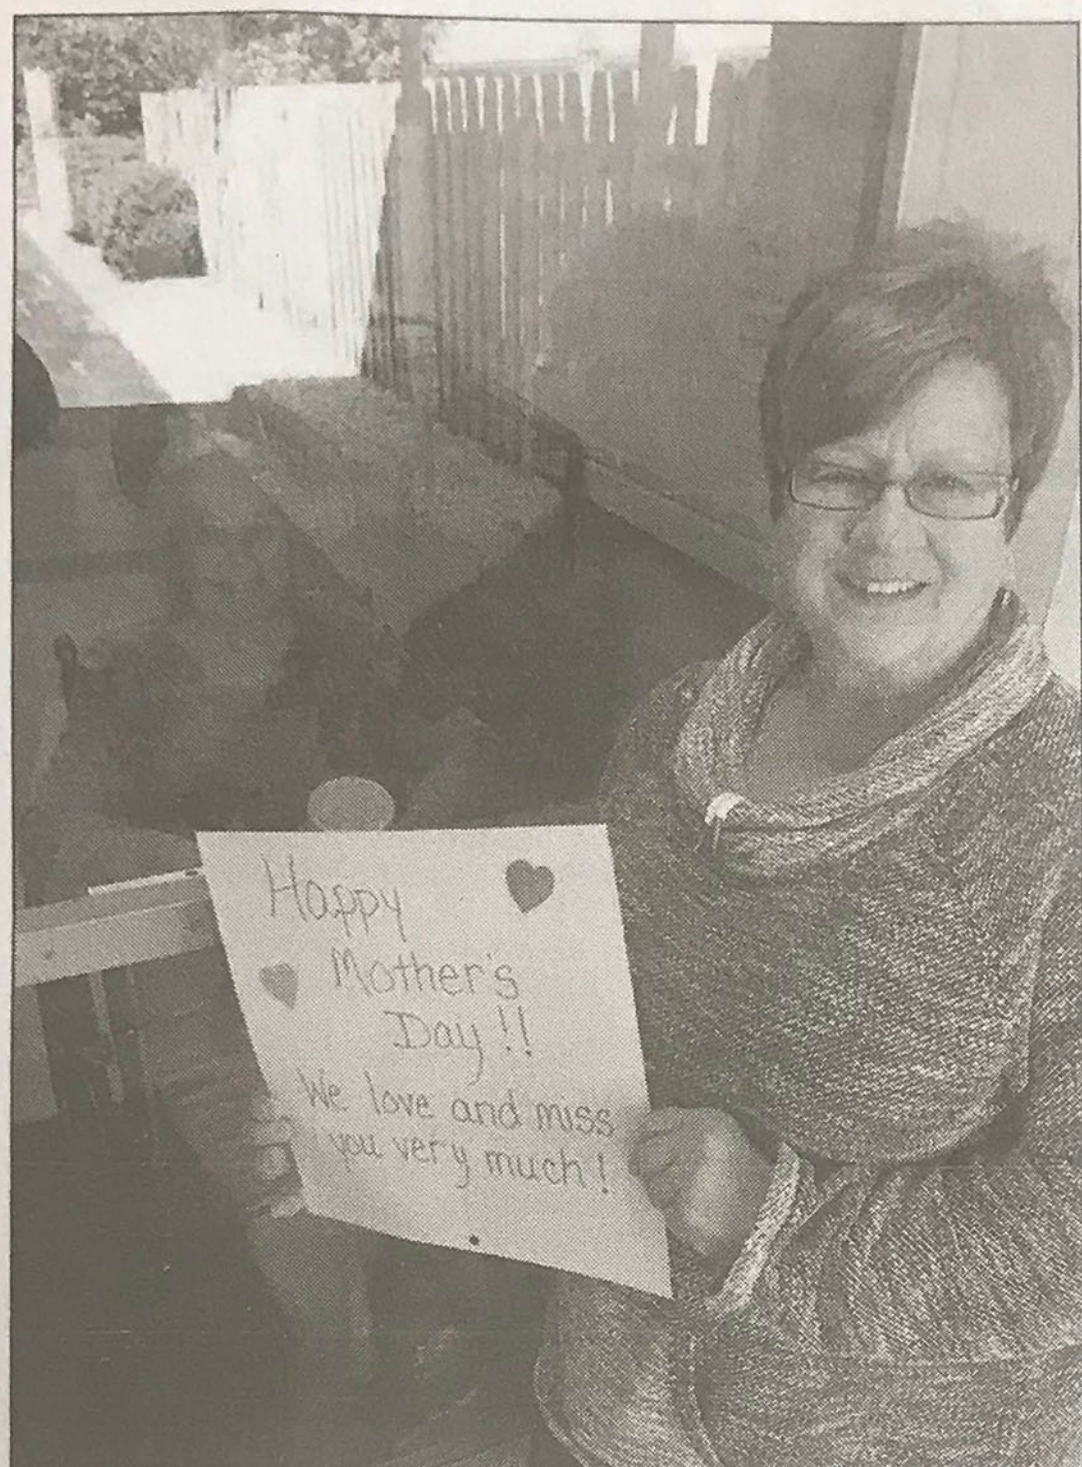 Happy
Mother's
Day!!
We love and miss
you very much!